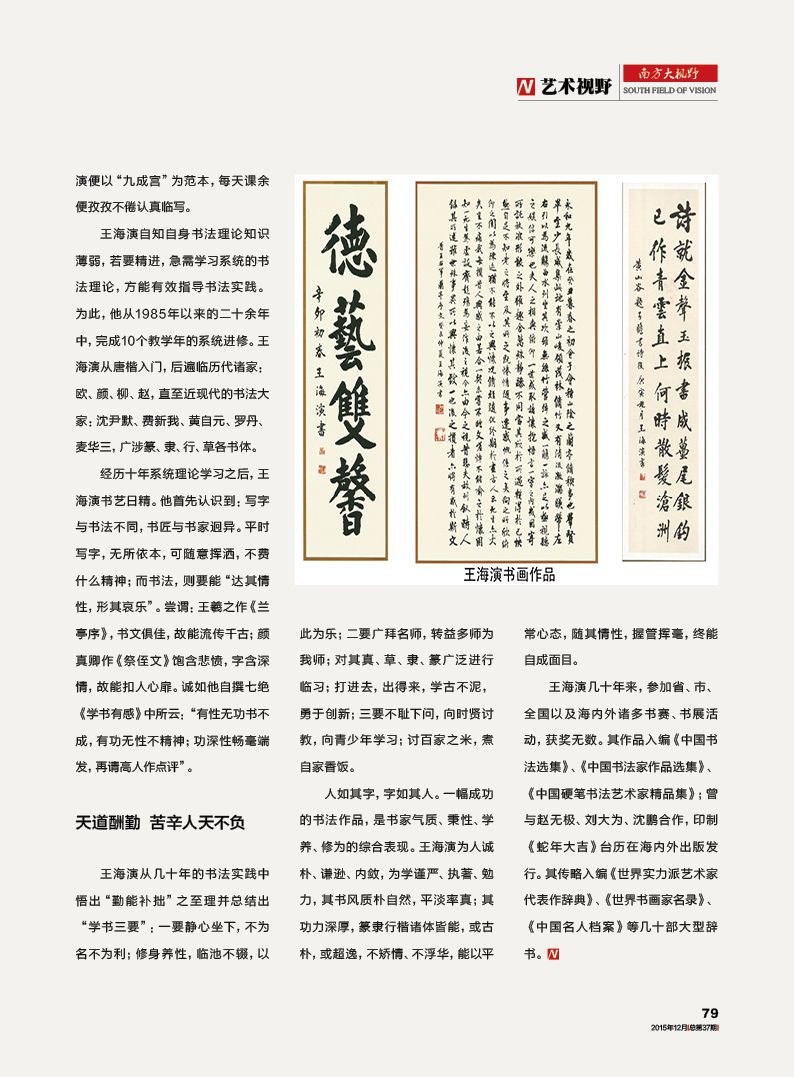 艺术视野
南方大视野
SOUTH FIELD OF VISION
演便以“九成宫”为范本，每天课余
便孜孜不倦认真临写。
王海演自知自身书法理论知识
薄弱，若要精进，急需学习系统的书
法理论，方能有效指导书法实践。
为此，他从1985年以来的二十余年
中，完成10个教学年的系统进修。王
海演从唐楷入门，后遍临历代诸家：
欧、颜、柳、赵，直至近现代的书法大
家：沈尹默、费新我、黄自元、罗丹、
麦华三，广涉篆、隶、行、草各书体。
经历十年系统理论学习之后，王
海演书艺日精。他首先认识到：写字
与书法不同，书匠与书家迥异。平时
写字，无所依本，可随意挥洒，不费
什么精神；而书法，则要能“达其情
性，形其哀乐”。尝谓：王羲之作《兰
亭序》，书文俱佳，故能流传千古；颜
真卿作《祭侄文》饱含悲愤，字含深
情，故能扣人心扉。诚如他自撰七绝
《学书有感》中所云：“有性无功书不
成，有功无性不精神；功深性畅毫端
发，再请高人作点评”。
天道酬勤 苦辛人天不负
王海演从几十年的书法实践中
悟出“勤能补拙”之至理并总结出
“学书三要”：一要静心坐下，不为
名不为利；修身养性，临池不辍，以
德藝雙馨
辛卯初春王海演书
詩就金聲玉振書成蠆尾銀鈎
已作青雲直上何時散髮滄洲
王海演书画作品
此为乐；二要广拜名师，转益多师为
我师；对其真、草、隶、篆广泛进行
临习；打进去，出得来，学古不泥，
勇于创新；三要不耻下问，向时贤讨
教，向青少年学习；讨百家之米，煮
自家香饭。
人如其字，字如其人。一幅成功
的书法作品，是书家气质、秉性、学
养、修为的综合表现。王海演为人诚
朴、谦逊、内敛，为学谨严、执著、勉
力，其书风质朴自然，平淡率真；其
功力深厚，篆隶行楷诸体皆能，或古
朴，或超逸，不矫情、不浮华，能以平
常心态，随其情性，握管挥毫，终能
自成面目。
王海演几十年来，参加省、市、
全国以及海内外诸多书赛、书展活
动，获奖无数。其作品入编《中国书
法选集》、《中国书法家作品选集》、
《中国硬笔书法艺术家精品集》；曾
与赵无极、刘大为、沈鹏合作，印制
《蛇年大吉》台历在海内外出版发
行。其传略入编《世界实力派艺术家
代表作辞典》、《世界书画家名录》、
《中国名人档案》等几十部大型辞
书。
79
2015年12月|总第37期|